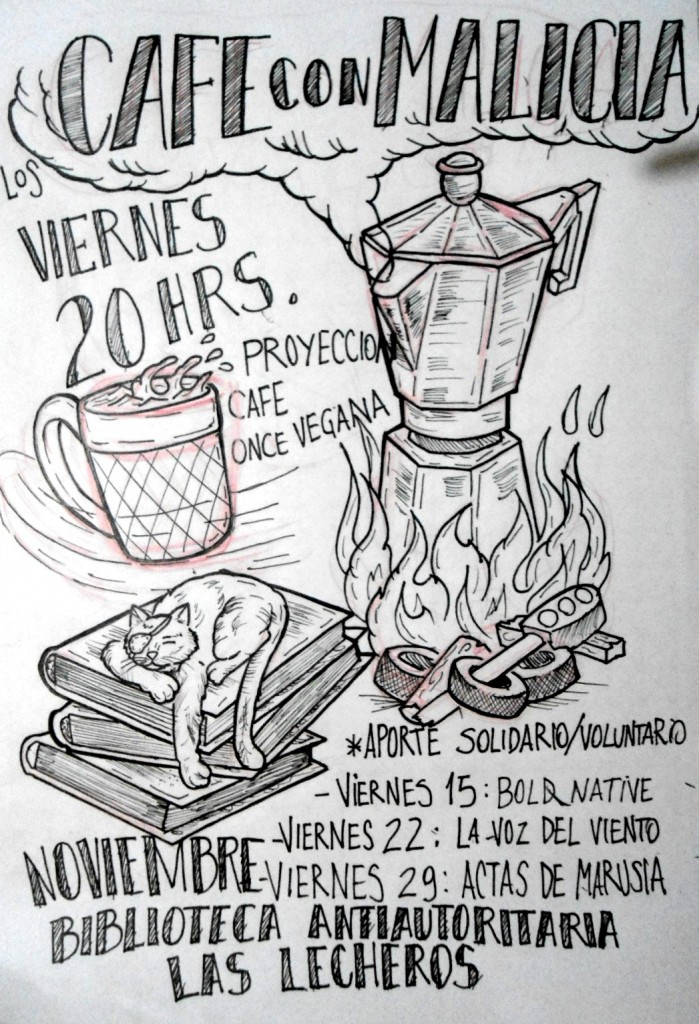 CAFE CON MALICIA
LOS
VIERNES
20 HRS.
PROYECCION
CAFE
ONCE VEGANA
*APORTE SOLIDARIO/VOLUNTARIO
- VIERNES 15: BOLD NATIVE
NOVIEMBRE
-VIERNES 22: LA VOZ DEL VIENTO
-VIERNES 29: ACTAS DE MARUSIA
BIBLIOTECA ANTIAUTORITARIA
LAS LECHEROS